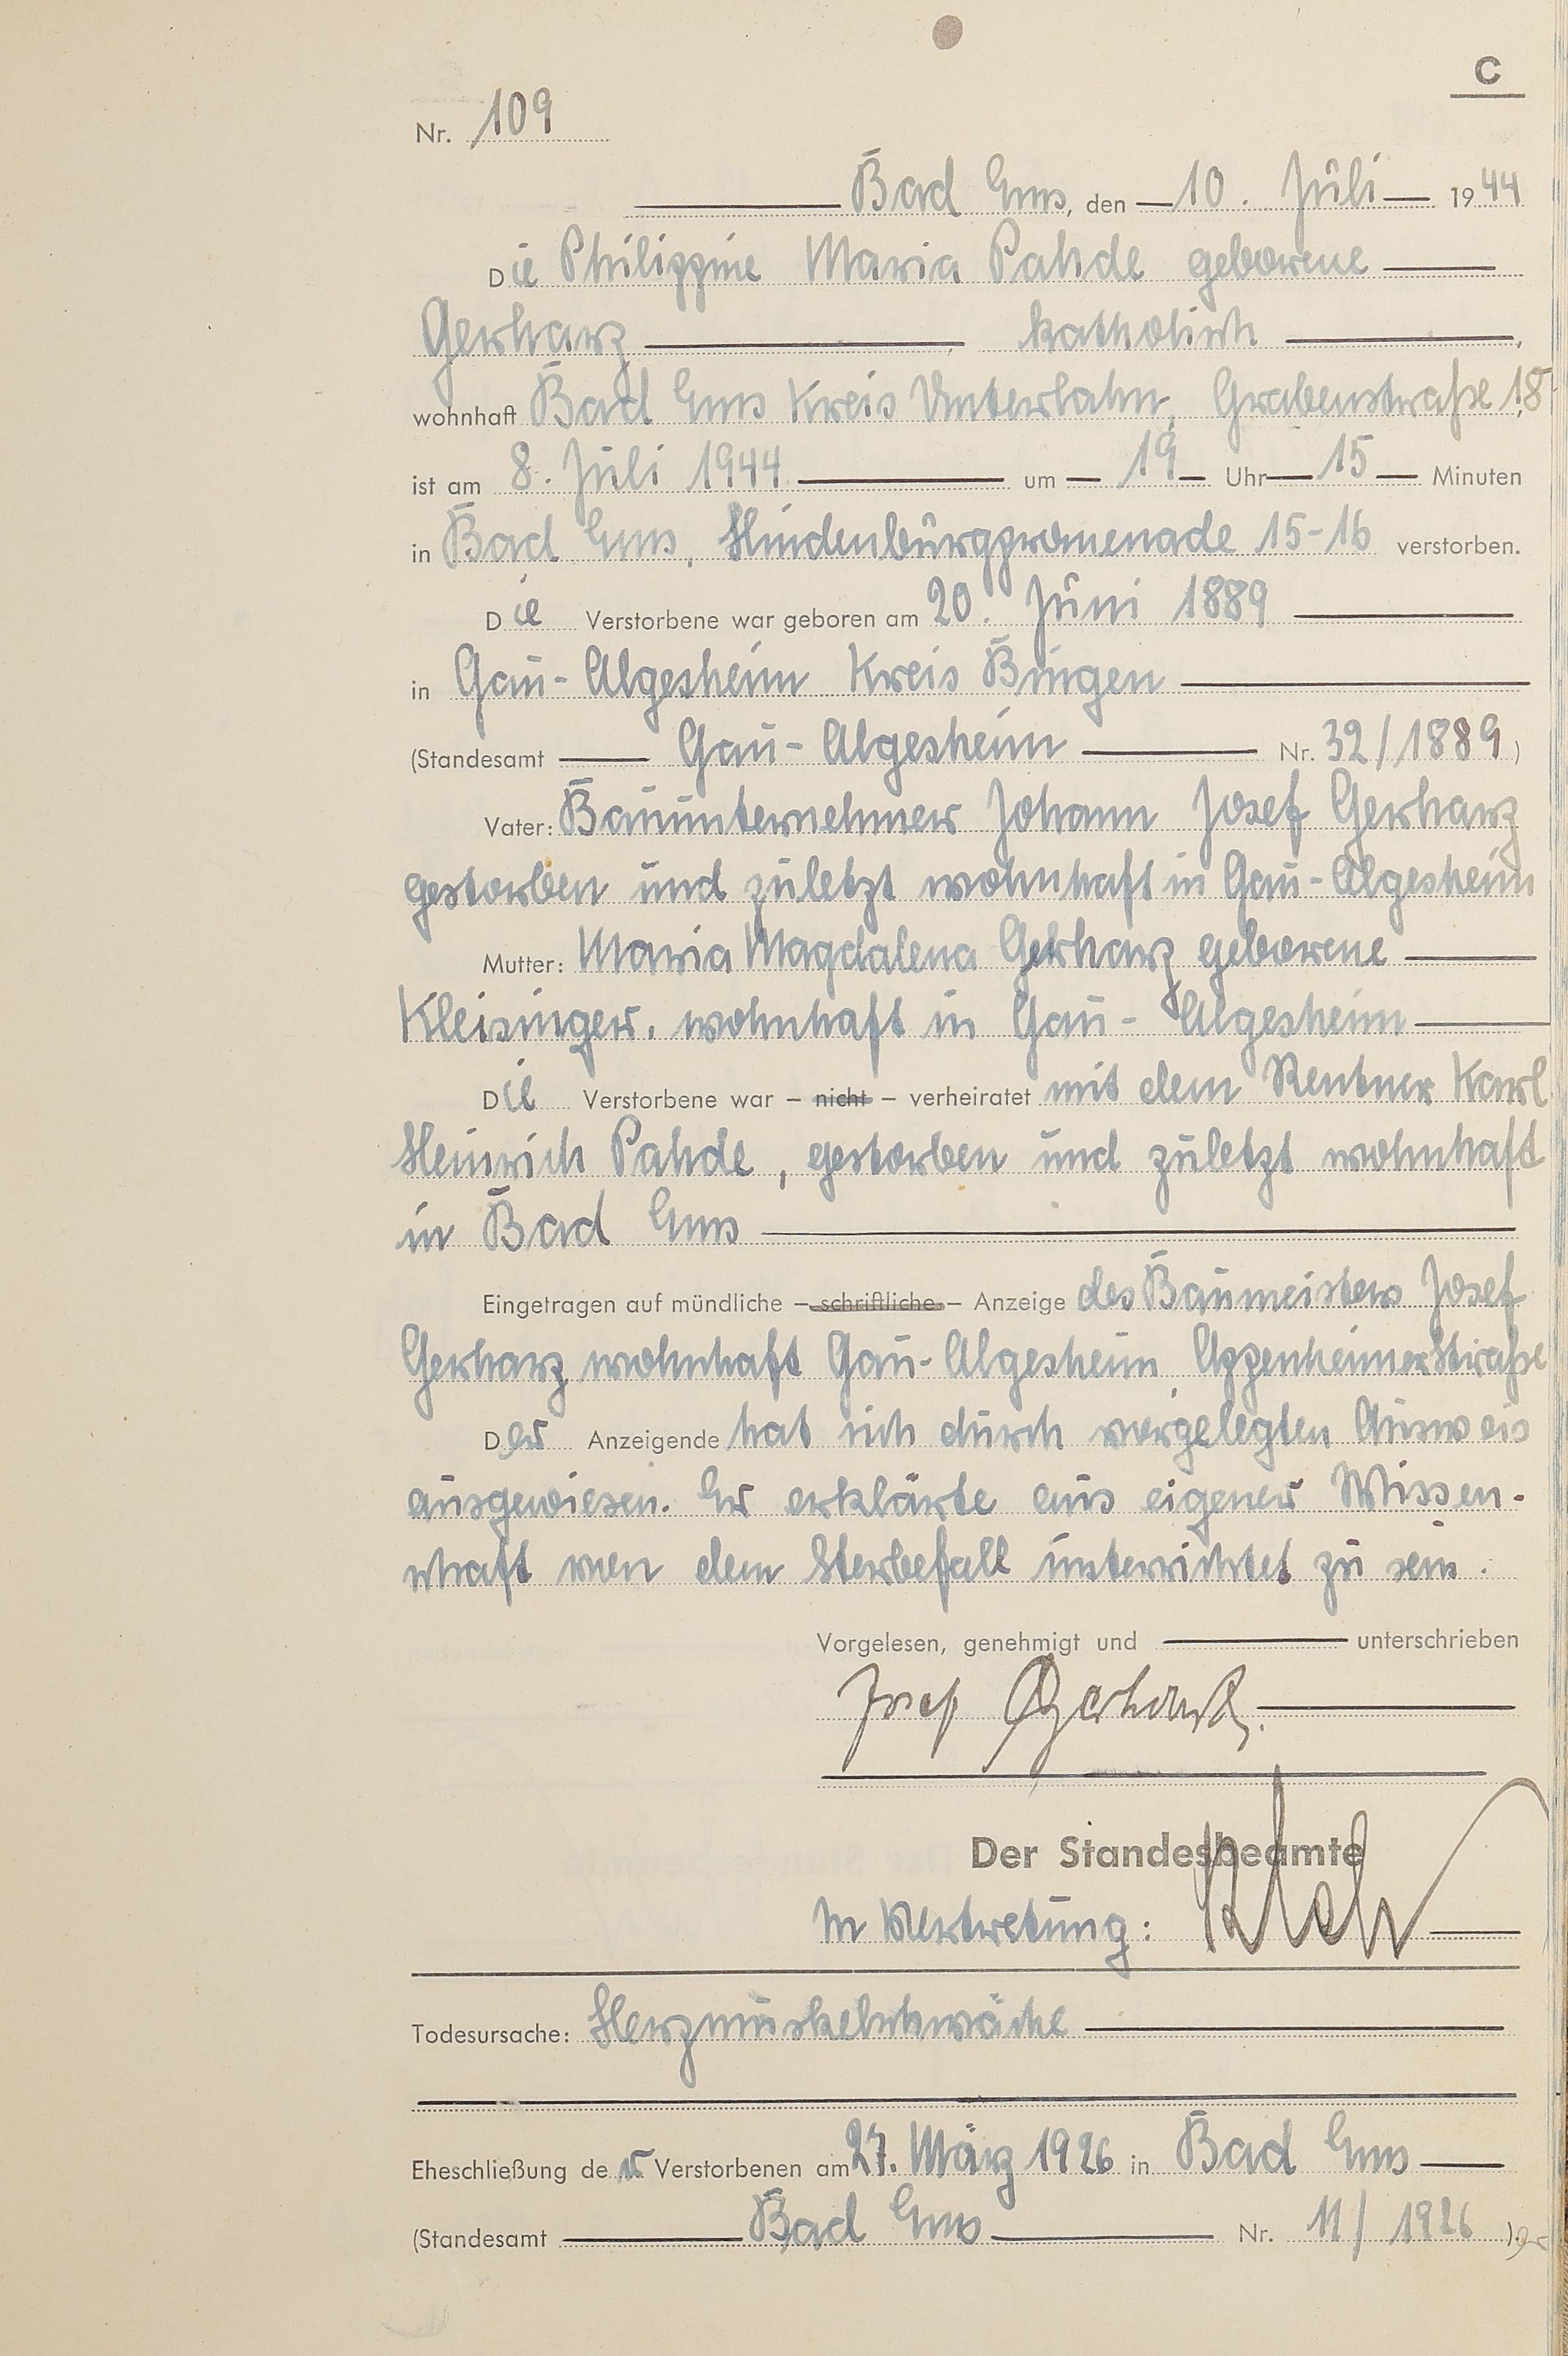 C
Nr. 109
Bad Ems, den 10. Juli 1944
Die Philippine Maria Pahde geborene
Gerharz katholisch,
wohnhaft Bad Ems Kreis Unterlahn, Grabenstraße 18
ist am 8. Juli 1944 um 19 Uhr 15 Minuten
in Bad Ems, Hindenburgpromenade 15-16 verstorben.
Die Verstorbene war geboren am 20. Juni 1889
in Gau-Algesheim Kreis Bingen
(Standesamt Gau-Algesheim Nr. 32/1889)
Vater: Bauunternehmer Johann Josef Gerharz
gestorben und zuletzt wohnhaft in Gau-Algesheim
Mutter: Maria Magdalena Gerharz geborene
Kleisinger, wohnhaft in Gau-Algesheim
Die Verstorbene war – nicht – verheiratet mit dem Rentner Karl
Heinrich Pahde, gestorben und zuletzt wohnhaft
in Bad Ems
Eingetragen auf mündliche – schriftliche – Anzeige des Baumeisters Josef
Gerharz wohnhaft Gau-Algesheim, Appenheimerstraße
Der Anzeigende hat sich durch vorgelegten Ausweis
ausgewiesen. Er erklärte aus eigener Wissen-
schaft von dem Sterbefall unterrichtet zu sein.
Vorgelesen, genehmigt und unterschrieben
Josef Gerharz.
Der Standesbeamte
In Vertretung:
Todesursache: Herzmuskelschwäche
Eheschließung der Verstorbenen am 27. März 1926 in Bad Ems
(Standesamt Bad Ems Nr. 11/1926).